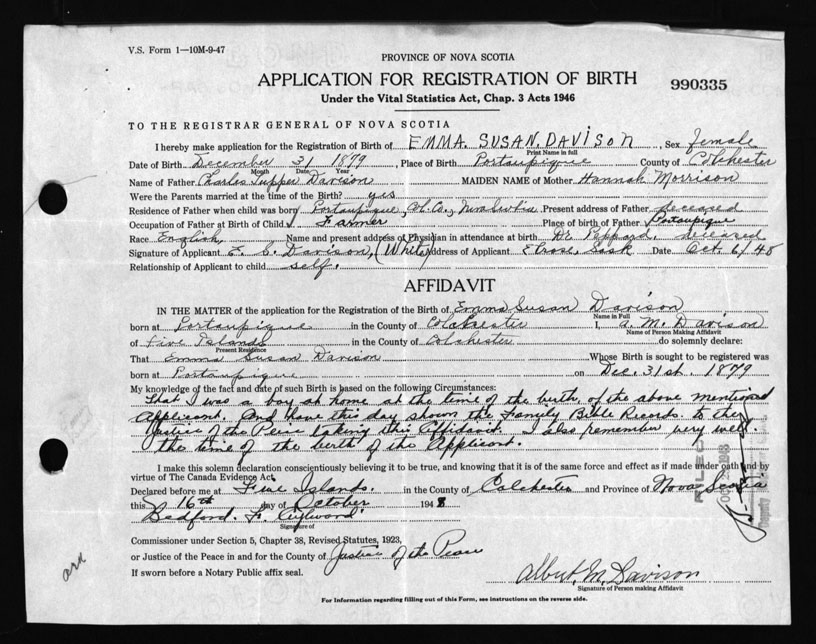 V.S. Form 1—10M-9-47
PROVINCE OF NOVA SCOTIA
APPLICATION FOR REGISTRATION OF BIRTH
990335
Under the Vital Statistics Act, Chap. 3 Acts 1946
TO THE REGISTRAR GENERAL OF NOVA SCOTIA
I hereby make application for the Registration of Birth of EMMA SUSAN DAVISON, Sex female
Print Name in full
Date of Birth December 31 1879, Place of Birth Portaupique County of Colchester
Month Date Year
Name of Father Charles Tupper Davison MAIDEN NAME of Mother Hannah Morrison
Were the Parents married at the time of Birth? yes
Residence of Father when child was born Portaupique, Col. Co., Nova Scotia Present address of Father deceased
Occupation of Father at Birth of Child Farmer Place of birth of Father Portaupique
Race English Name and present address of Physician in attendance at birth Dr Peppard, deceased
Signature of Applicant E. S. Davison, (White) Address of Applicant Elrose, Sask Date Oct. 6/48
Relationship of Applicant to child self.
AFFIDAVIT
IN THE MATTER of the application for the Registration of the Birth of Emma Susan Davison
Name in Full
born at Portaupique in the County of Colchester I, A. M. Davison
Name of Person Making Affidavit
of Five Islands in the County of Colchester do solemnly declare:
Present Residence
That Emma Susan Davison Whose Birth is sought to be registered was
born at Portaupique on Dec. 31st. 1879
My knowledge of the fact and date of such Birth is based on the following Circumstances:
That I was a boy at home at the time of the birth of the above mentioned
Applicant. And have this day shown the Family Bible Records to the
Justice of the Peace taking this Affidavit. I also remember very well
the time of the birth of the Applicant.
I make this solemn declaration conscientiously believing it to be true, and knowing that it is of the same force and effect as if made under oath and by
virtue of The Canada Evidence Act.
Declared before me at Five Islands in the County of Colchester and Province of Nova Scotia
this 16th day of October 1948
Bedford F.
Signature of
Commissioner under Section 5, Chapter 38, Revised Statutes, 1923,
or Justice of the Peace in and for the County of Justice of the Peace
If sworn before a Notary Public affix seal.
Albert M. Davison
Signature of Person making Affidavit
For Information regarding filling out of this Form, see instructions on the reverse side.
FILED